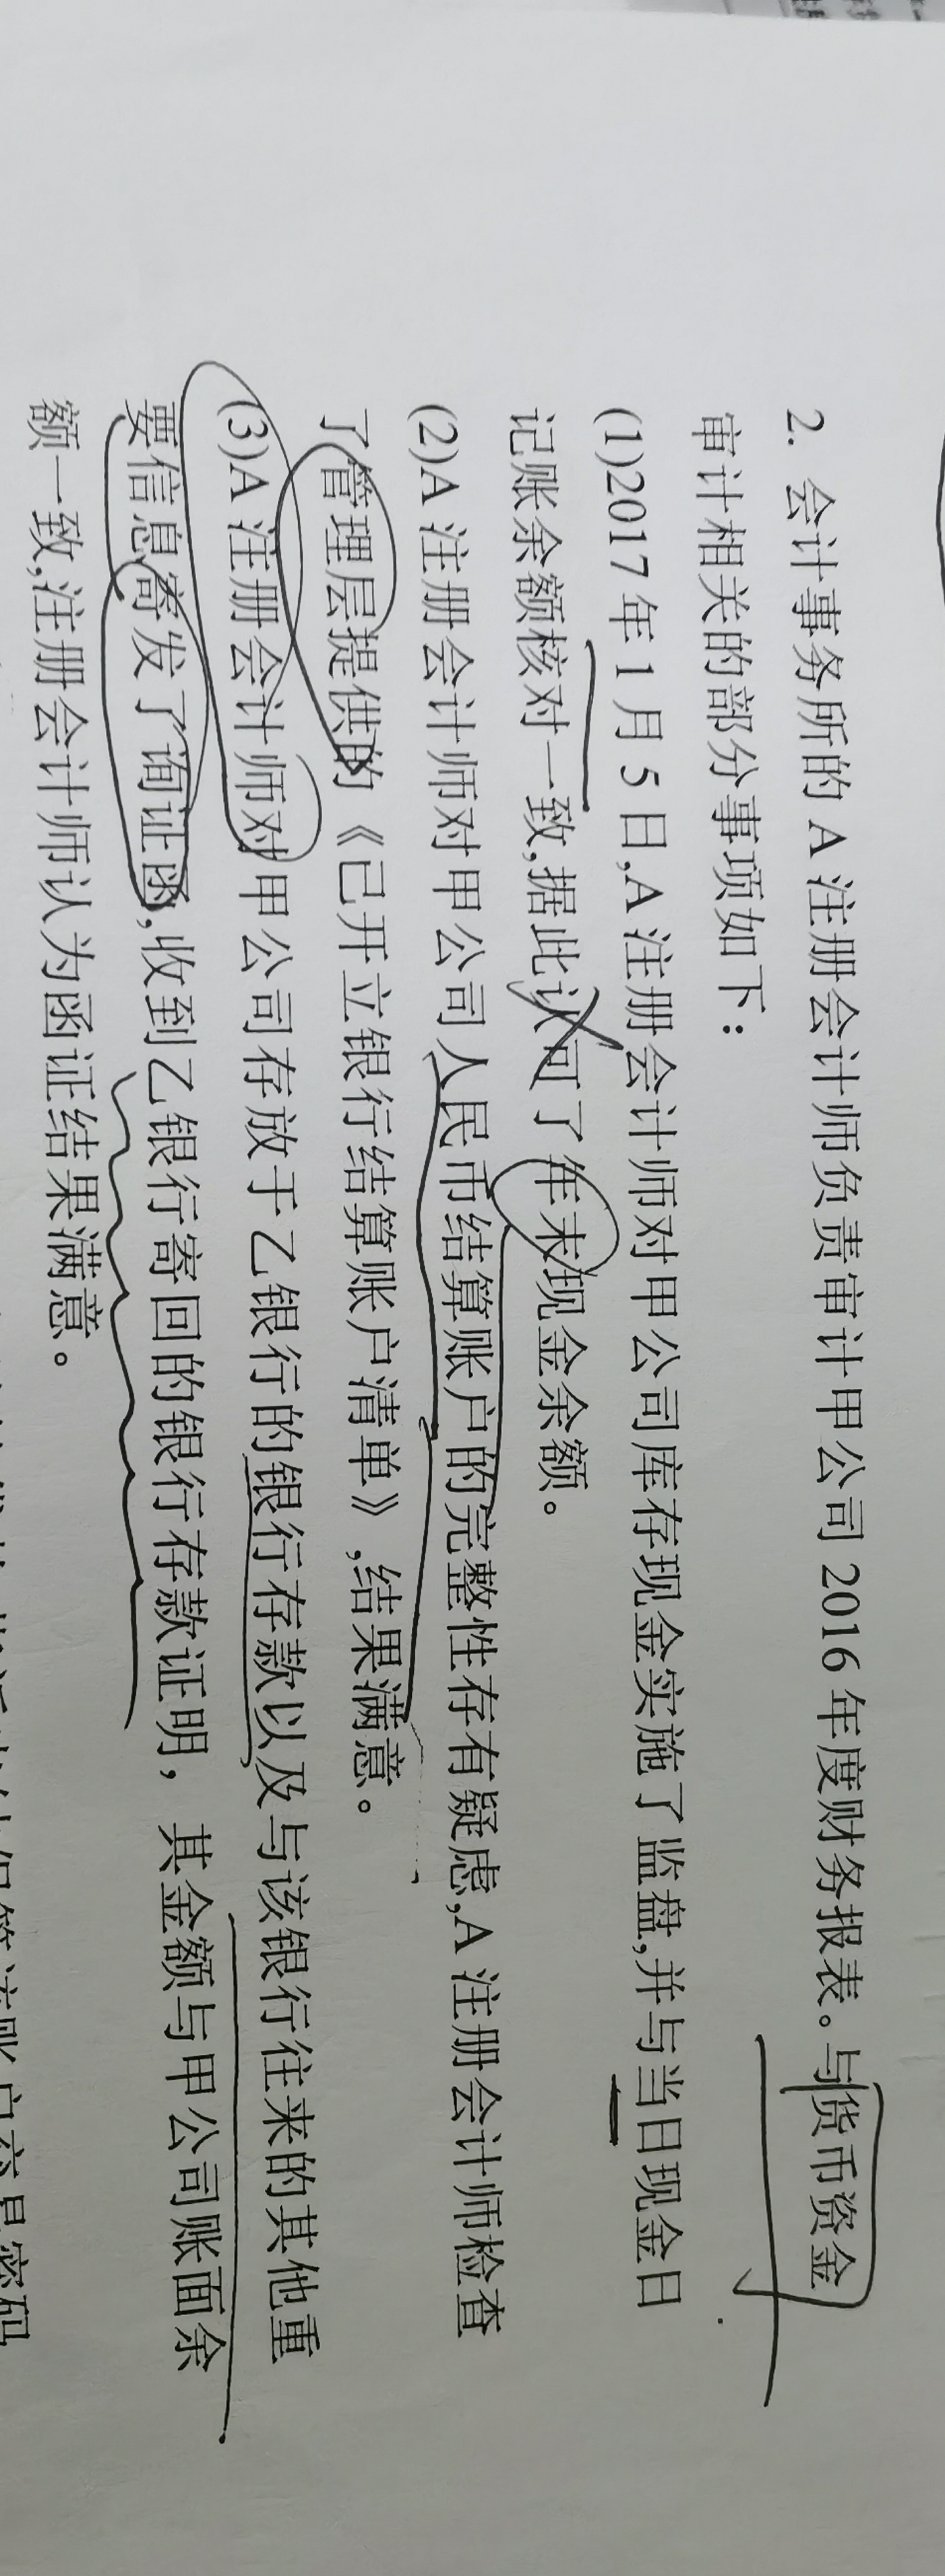 2. 会计事务所的 A 注册会计师负责审计甲公司 2016 年度财务报表。与货币资金
审计相关的部分事项如下：
(1)2017 年 1 月 5 日,A 注册会计师对甲公司库存现金实施了监盘,并与当日现金日
记账余额核对一致,据此认可了年末现金余额。
(2)A 注册会计师对甲公司人民币结算账户的完整性存有疑虑,A 注册会计师检查
了管理层提供的《已开立银行结算账户清单》,结果满意。
(3)A 注册会计师对甲公司存放于乙银行的银行存款以及与该银行往来的其他重
要信息寄发了询证函,收到乙银行寄回的银行存款证明，其金额与甲公司账面余
额一致,注册会计师认为函证结果满意。